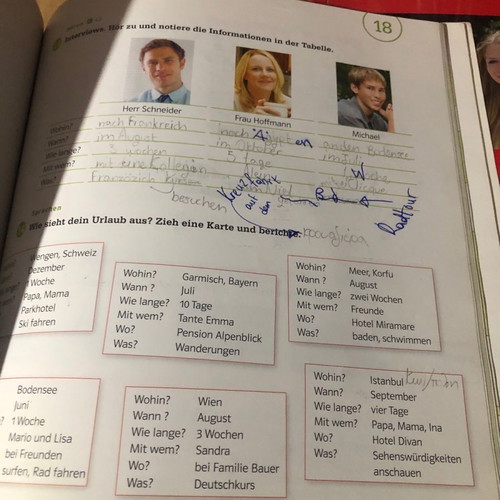 18
Interviews. Hör zu und notiere die Informationen in der Tabelle.
Herr Schneider
Frau Hoffmann
Michael
Wohin? nach Frankreich nach an den Bodensee
Wann? im August im Oktober im Juli
Wie lange? 3 Wochen 5 Tage
Wem? mit eine Kollegin
Was? Französich Kurs
besuchen
Kreuz
auf
den
Radtour
Sprechen
Wie sieht dein Urlaub aus? Zieh eine Karte und berichte.
Wengen, Schweiz
Dezember
1 Woche
Papa, Mama
Parkhotel
Ski fahren
Wohin? Garmisch, Bayern
Wann? Juli
Wie lange? 10 Tage
Mit wem? Tante Emma
Wo? Pension Alpenblick
Was? Wanderungen
Wohin? Meer, Korfu
Wann? August
Wie lange? zwei Wochen
Mit wem? Freunde
Wo? Hotel Miramare
Was? baden, schwimmen
Bodensee
Juni
1 Woche
Mario und Lisa
bei Freunden
surfen, Rad fahren
Wohin? Wien
Wann ? August
Wie lange? 3 Wochen
Mit wem? Sandra
Wo? bei Familie Bauer
Was? Deutschkurs
Wohin? Istanbul
Wann? September
Wie lange? vier Tage
Mit wem? Papa, Mama, Ina
Wo? Hotel Divan
Was? Sehenswürdigkeiten
anschauen